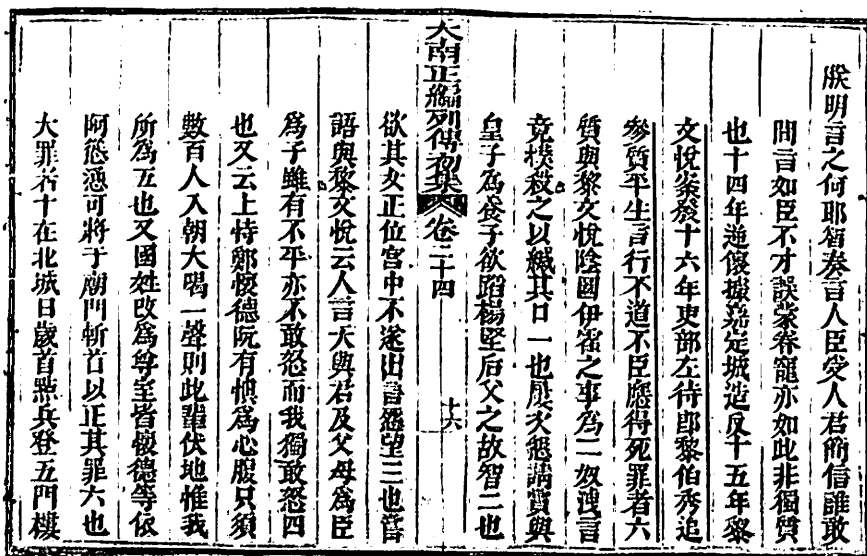 朕明言之何耶智奏言人臣受人君簡信誰敢
間言如臣不才誤蒙眷寵亦如此非獨質
也十四年逆𠐤據嘉定城造反十五年黎
文悅案發十六年吏部左侍郎黎伯秀追
參質平生言行不道不臣應得死罪者六
質與黎文悅陰圖伊霍之事爲二奴洩言
竟撲殺之以緘其口一也屢次慫請質與
皇子爲養子欲蹈楊堅后父之故智二也
大南正編列傳初集 卷二十四 十六
欲其女正位宮中不遂出語怨望三也嘗
語與黎文悅云人言天與君及父母爲臣
爲子雖有不平亦不敢怒而我獨敢怒四
也又云上恃鄭懷德阮有慎爲心腹只須
數百人入朝大喝一聲則此輩伏地惟我
所爲五也又國姓改爲尊室皆懷德等依
阿慫恿可將于廟門斬首以正其罪六也
大罪者十在北城日歲首點兵登五門樓